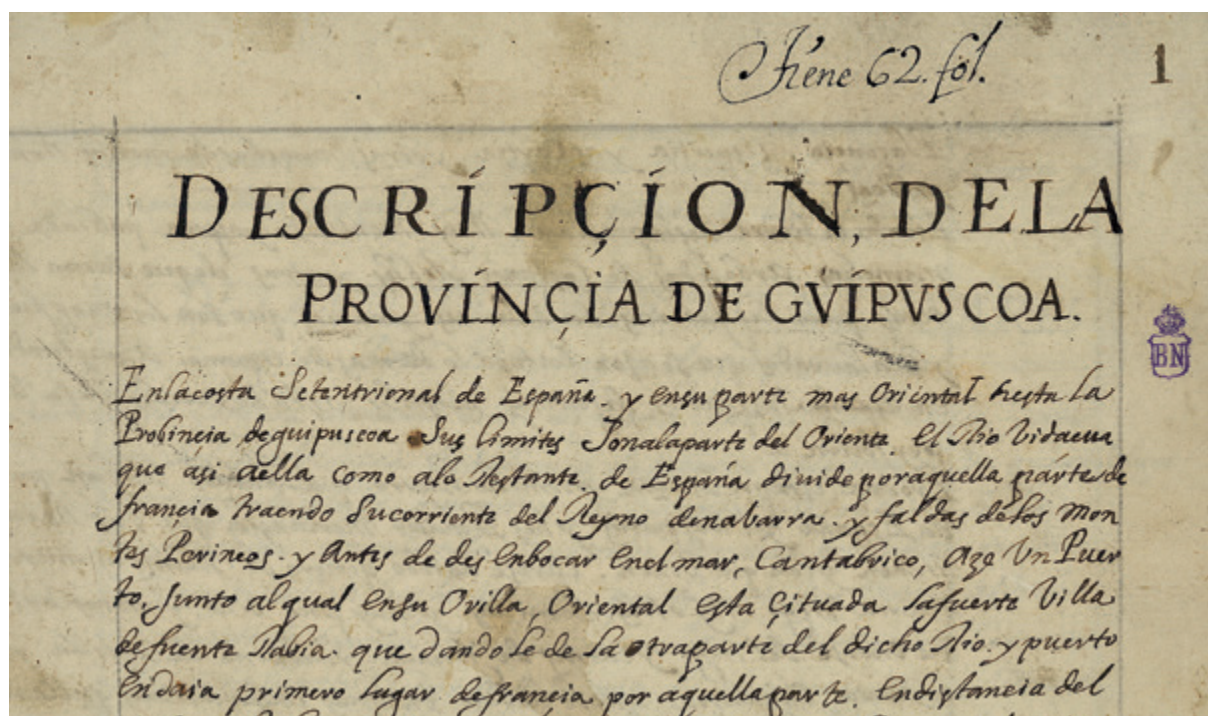 Tiene 62. fol.
1
DESCRÍPÇÍON, DELA
PROVÍNÇÍA DE GVÍPVSCOA.
BN
Enlacosta Setentrional de España. y ensu parte mas Oriental questa La
Probincia deguipuscoa Sus limites Sonalaparte del Oriente. El Rio Vidacua
que àsi aella como alo Restante. de España diuide poraquella parte de
françia traendo Sucorriente del Reyno denabarra. y faldas delos mon
tes Perineos. y Antes de des enbocar Enel mar, Cantabrico, Aze Un Puer
to, Junto alqual ensu Orilla, Oriental esta Çituada Lafuerte Villa
defuente Rabia. que dando le de La otraparte del dicho Rio. y puerto
Endaia primero Lugar defrancia por aquellaparte. Endistancia del